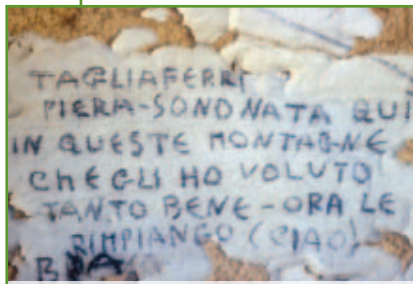 TAGLIAFERRI
PIERA-SONO NATA QUI
IN QUESTE MONTAGNE
CHE GLI HO VOLUTO
TANTO BENE-ORA LE
RIMPIANGO (CIAO)